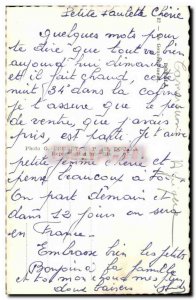 Petite Paulette Chérie
Quelques mots pour
te dire que tout va bien
aujourd'hui dimanche
et il fait chaud, cette
nuit 34° dans la
je t'assure que le peu
de ventre que j'avais
pris, est parti. Je t'aime
petite femme chérie et
pense beaucoup à toi
On part demain et
dans 12 jours on sera
en France.
Embrasse bien les petits
Bonjour à la famille
et toi mon chou mes plus
doux baisers
Photo